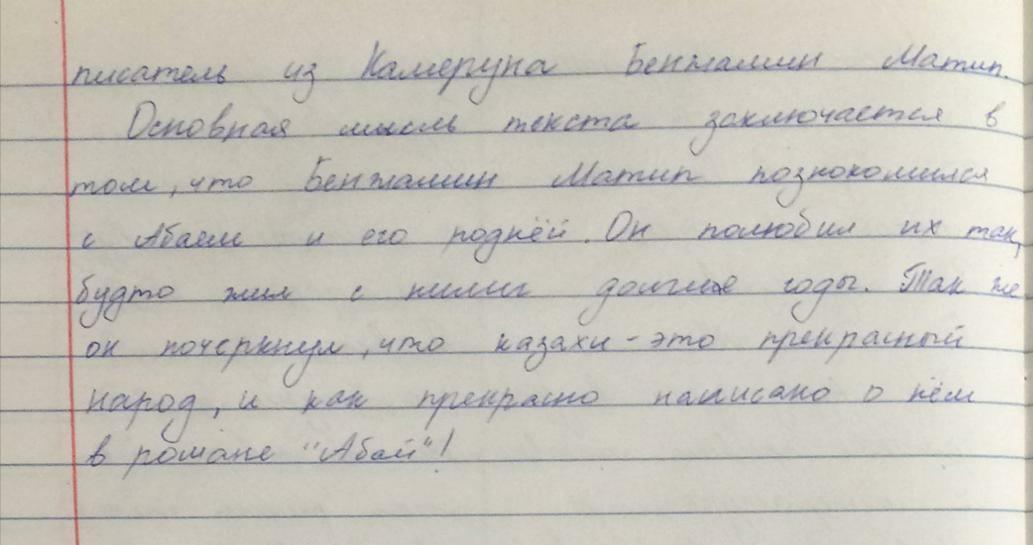 писатель из Камеруна Бенжамин Матип.
Основная мысль текста заключается в
том, что Бенжамин Матип познокомился
с Абаем и его роднёй. Он полюбил их так,
будто жил с ними долгие годы. Так же
он почеркнул, что казахи - это прекрасный
народ, и как прекрасно написано о нём
в романе "Абай"!